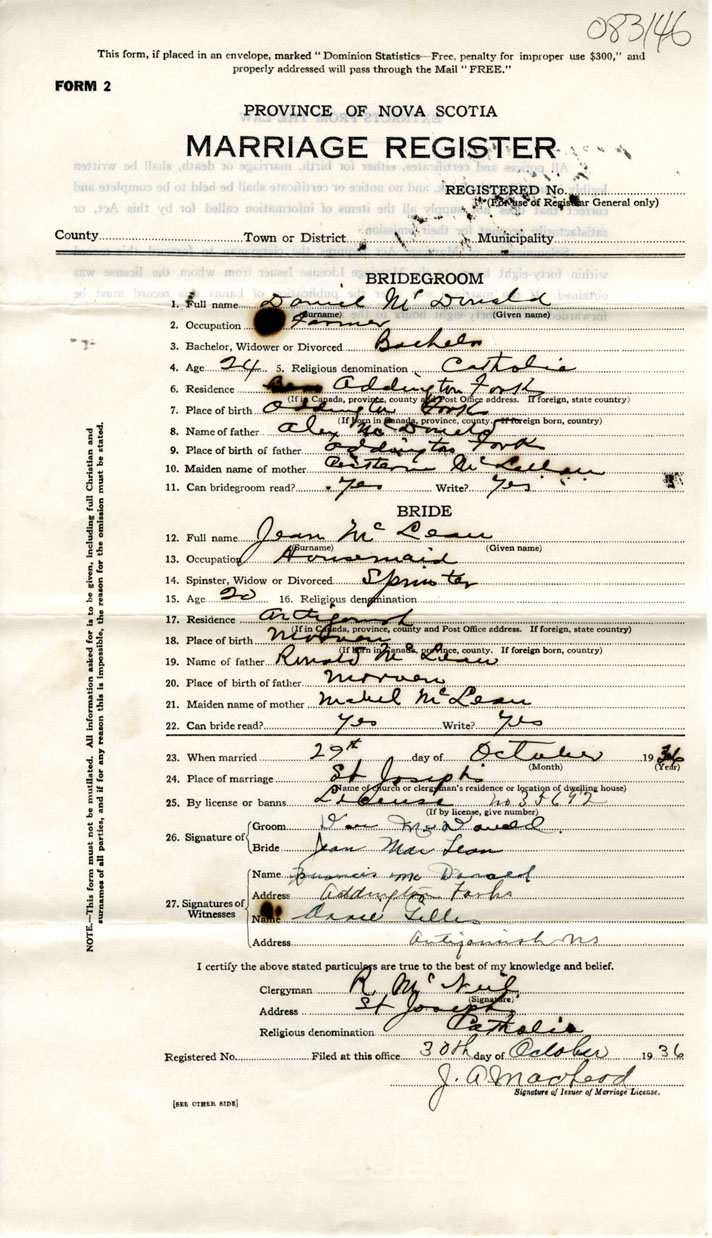 083146
This form, if placed in an envelope, marked "Dominion Statistics—Free, penalty for improper use $300," and
properly addressed will pass through the Mail "FREE."
FORM 2
PROVINCE OF NOVA SCOTIA
MARRIAGE REGISTER
REGISTERED No.
(For use of Registrar General only)
County Town or District Municipality
BRIDEGROOM
1. Full name Daniel McDonald
(Surname) (Given name)
2. Occupation Farmer
3. Bachelor, Widower or Divorced Bachelor
4. Age 24 5. Religious denomination Catholic
6. Residence Addington Forks
(If in Canada, province, county and Post Office address. If foreign, state country)
7. Place of birth Addington Forks
(If born in Canada, province, county. If foreign born, country)
8. Name of father Alex McDonald
9. Place of birth of father Addington Forks
10. Maiden name of mother McLellan
11. Can bridegroom read? Yes Write? Yes
BRIDE
12. Full name Jean McLean
(Surname) (Given name)
13. Occupation Housemaid
14. Spinster, Widow or Divorced Spinster
15. Age 20 16. Religious denomination
17. Residence Antigonish
(If in Canada, province, county and Post Office address. If foreign, state country)
18. Place of birth Morvan
(If born in Canada, province, county. If foreign born, country)
19. Name of father Ronald McLean
20. Place of birth of father Morven
21. Maiden name of mother Mabel McLean
22. Can bride read? Yes Write? Yes
23. When married 29th day of October 1936
(Month) (Year)
24. Place of marriage St Josephs
(Name of church or clergyman's residence or location of dwelling house)
25. By license or banns License no 35692
(If by license, give number)
26. Signature of Groom Dan McDonald
Bride Jean MacLean
27. Signatures of Witnesses Name Francis McDonald
Address Addington Forks
Name Gillis
Address Antigonish NS
I certify the above stated particulars are true to the best of my knowledge and belief.
Clergyman R. McNeil
(Signature)
Address St Josephs
Religious denomination Catholic
Registered No. Filed at this office 30th day of October 1936
J. A. MacLeod
Signature of Issuer of Marriage License.
[SEE OTHER SIDE]
NOTE.—This form must not be mutilated. All information asked for is to be given, including full Christian and
surnames of all parties, and if for any reason this is impossible, the reason for the omission must be stated.